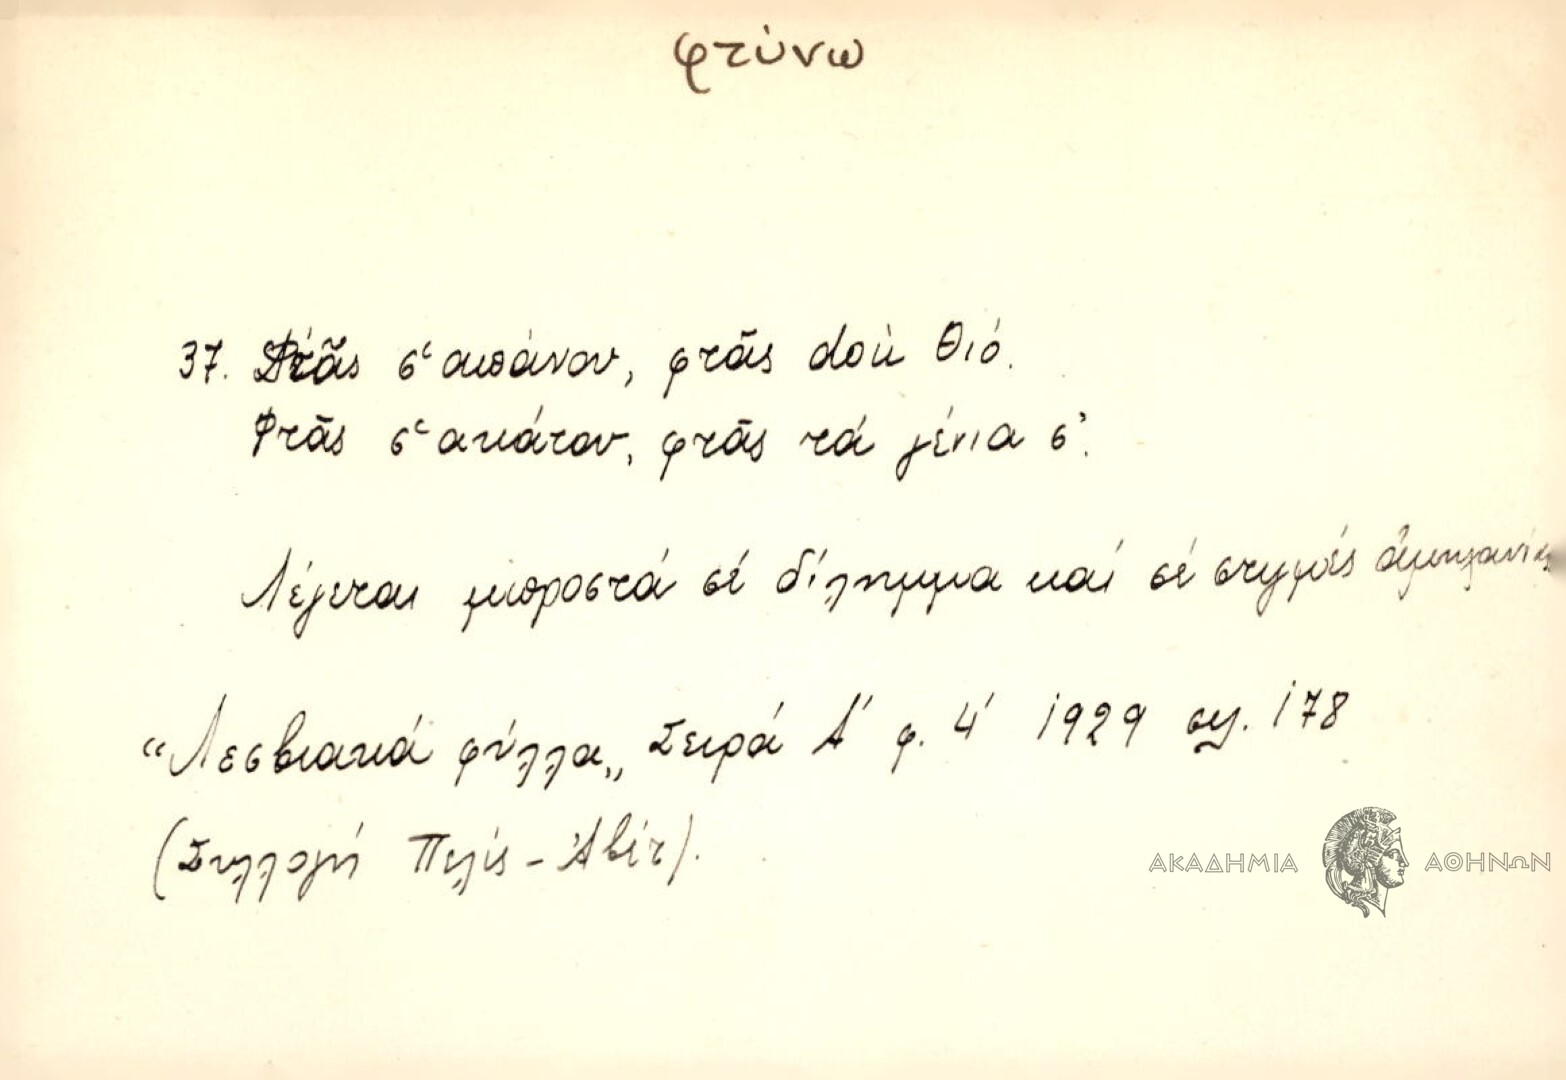 φτύνω
37. Φτᾶς σ' απάνου, φτᾶς dού Θιό.
Φτᾶς σ' ακάτου, φτᾶς τά γένια σ'.
Λέγεται μπροστά σέ δίλημμα καί σέ στιγμές ἀμηχανίας
“Λεσβιακά φύλλα„ Σειρά Α' φ. 4' 1929 σελ. 178
(Συλλογή Πελίς - Ἀβέτ).
ΑΚΑΔΗΜΙΑ ΑΘΗΝΩΝ